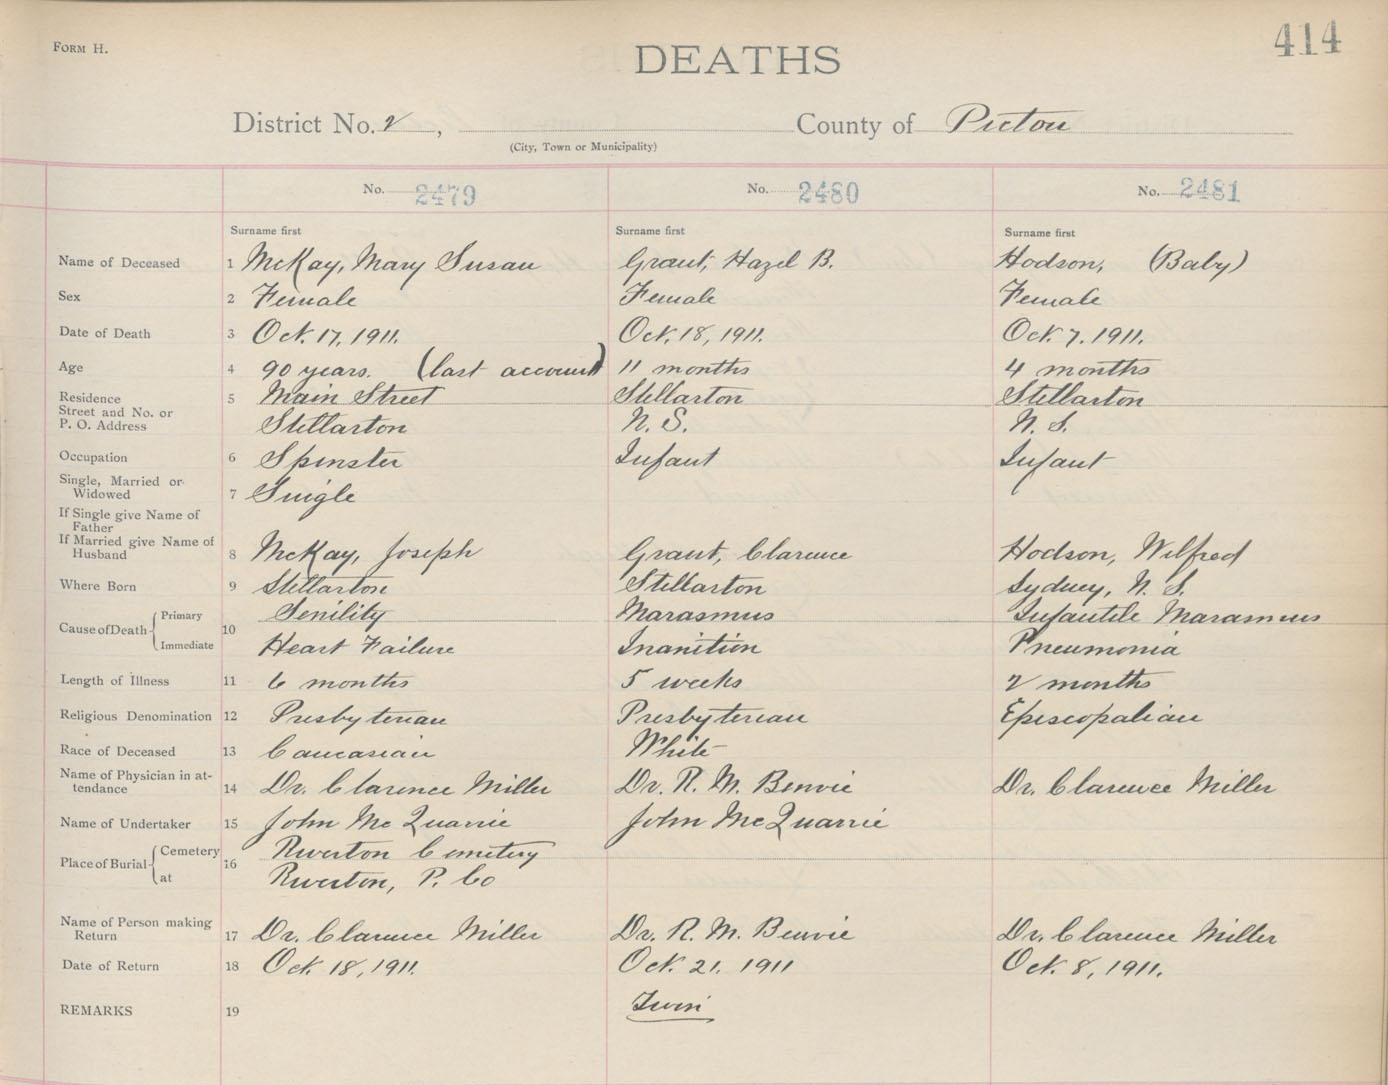 FORM H.
414
DEATHS
District No. 2, County of Pictou
(City, Town or Municipality)
No. 2479 No. 2480 No. 2481
Surname first Surname first Surname first
Name of Deceased 1 McKay, Mary Susan Grant, Hazel B. Hodson, (Baby)
Sex 2 Female Female Female
Date of Death 3 Oct. 17, 1911. Oct. 18, 1911. Oct. 7. 1911.
Age 4 90 years. (last account) 11 months 4 months
Residence 5 Main Street Stellarton Stellarton
Street and No. or
P. O. Address Stellarton N. S. N. S.
Occupation 6 Spinster Infant Infant
Single, Married or
Widowed 7 Single
If Single give Name of
Father
If Married give Name of
Husband 8 McKay, Joseph Grant, Clarence Hodson, Wilfred
Where Born 9 Stellarton Stellarton Sydney, N. S.
Cause of Death 10 Primary Senility Marasmus Infantile Marasmus
Immediate Heart Failure Inanition Pneumonia
Length of Illness 11 6 months 5 weeks 2 months
Religious Denomination 12 Presbyterian Presbyterian Episcopalian
Race of Deceased 13 Caucasian White
Name of Physician in at-
tendance 14 Dr. Clarence Miller Dr. R. M. Benvie Dr. Clarence Miller
Name of Undertaker 15 John McQuarrie John McQuarrie
Place of Burial 16 Cemetery Riverton Cemetery
at Riverton, P. Co
Name of Person making
Return 17 Dr. Clarence Miller Dr. R. M. Benvie Dr. Clarence Miller
Date of Return 18 Oct. 18, 1911. Oct. 21. 1911 Oct. 8, 1911.
REMARKS 19 Twin